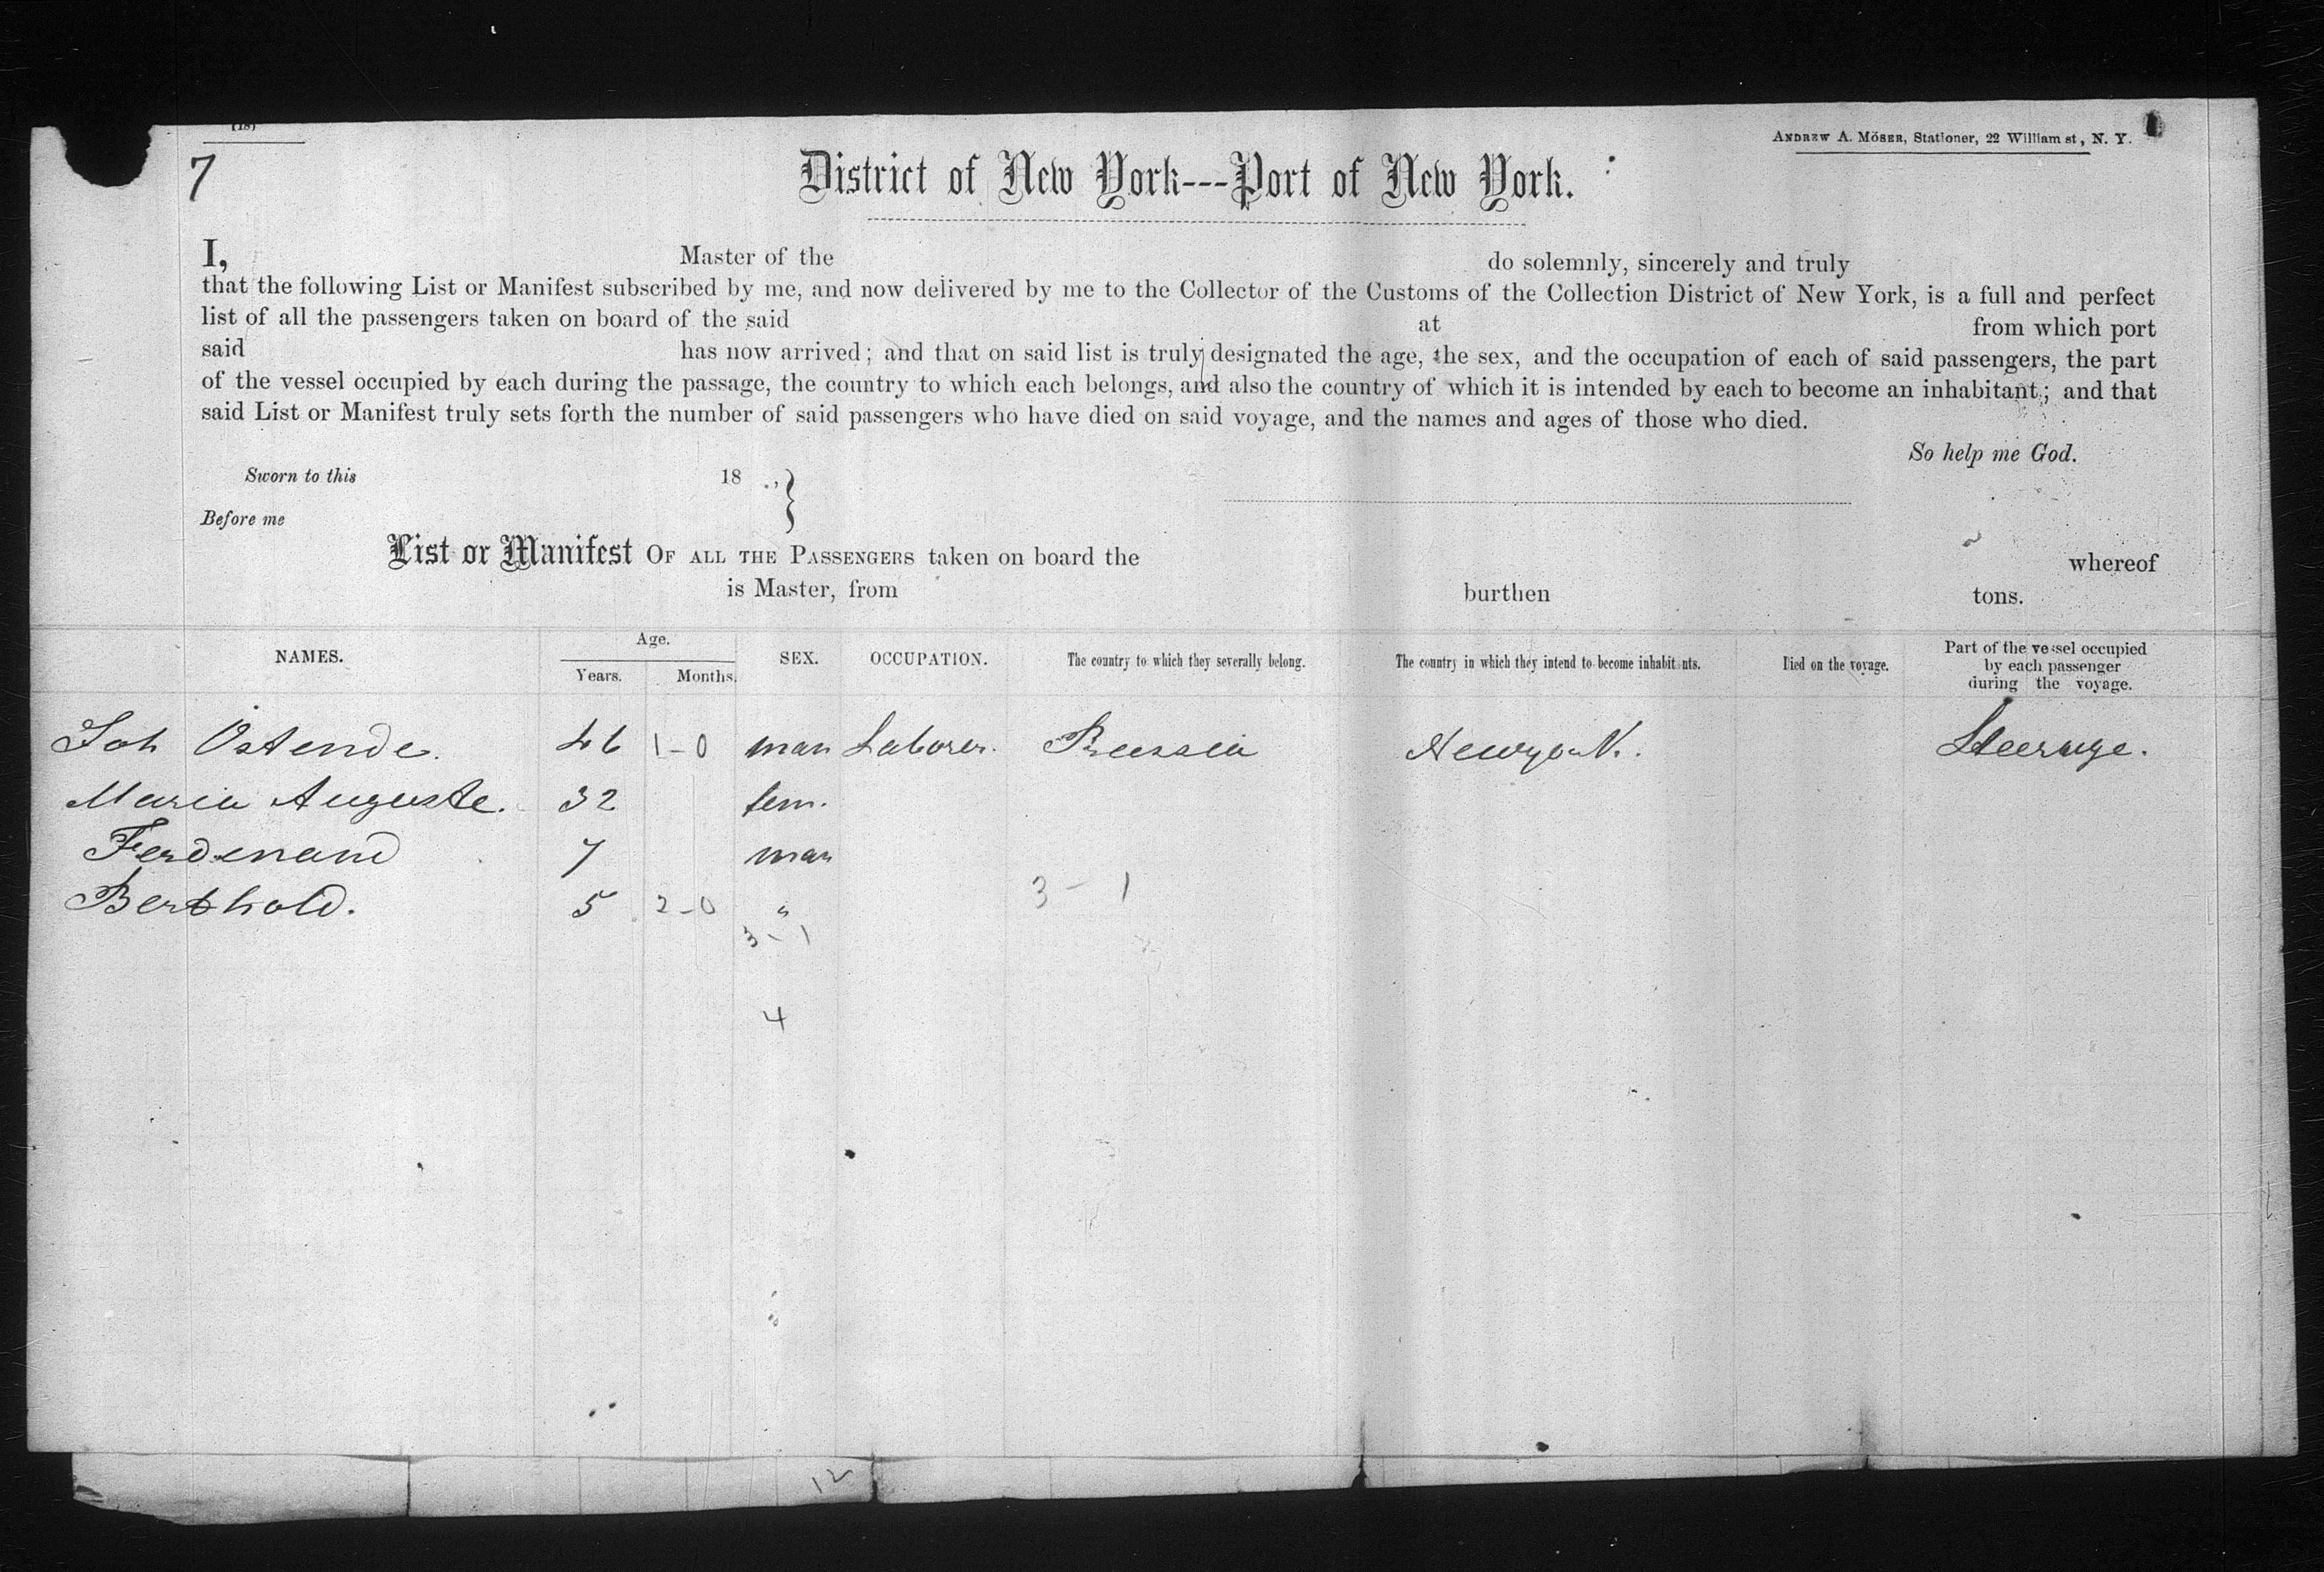 (18)
ANDREW A. MÖSER, Stationer, 22 William st, N. Y.
7
District of New York---Port of New York.
I, Master of the do solemnly, sincerely and truly
that the following List or Manifest subscribed by me, and now delivered by me to the Collector of the Customs of the Collection District of New York, is a full and perfect
list of all the passengers taken on board of the said at from which port
said has now arrived; and that on said list is truly designated the age, the sex, and the occupation of each of said passengers, the part
of the vessel occupied by each during the passage, the country to which each belongs, and also the country of which it is intended by each to become an inhabitant; and that
said List or Manifest truly sets forth the number of said passengers who have died on said voyage, and the names and ages of those who died.
So help me God.
Sworn to this 18
Before me
List or Manifest OF ALL THE PASSENGERS taken on board the whereof
is Master, from burthen tons.
NAMES. Age. Years. Months. SEX. OCCUPATION. The country to which they severally belong. The country in which they intend to become inhabitants. Died on the voyage. Part of the vessel occupied by each passenger during the voyage.
Joh Ostende. 46 1-0 man Laborer. Prussia Newyork. Steerage.
Maria Auguste. 32 fem.
Ferdinand 7 man
Berthold. 5 2-0 "
3 - 1
3 - 1
4
12